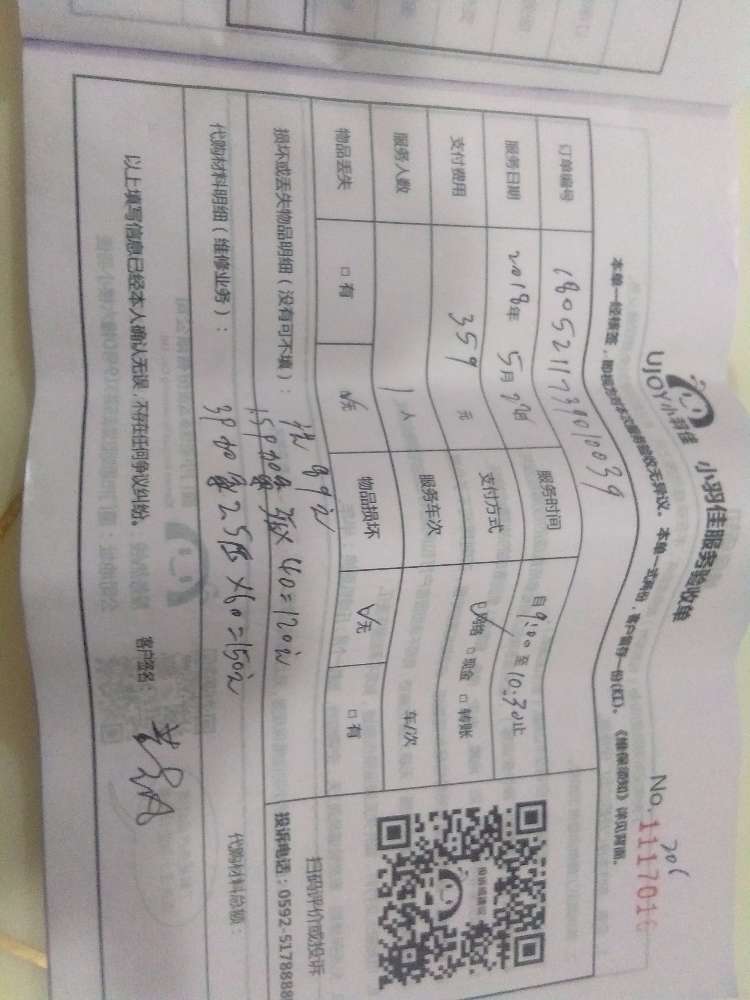 UJOY小羽佳 小羽佳服务验收单
No.1117016
206
本单一经核签，即视为对本次服务验收无异议。本单一式两份，客户留存一份(红)。《维保须知》详见背面。
订单编号 18052117390 10039
服务日期 2018年 5月 日 服务时间 自9:00至10:30止
支付费用 359 元 支付方式 ☑网络 □现金 □转账
服务人数 1 人 服务车次 车/次
物品丢失 □有 ☑无 物品损坏 ☑无 □有
损坏或丢失物品明细（没有可不填）：
洗 89元
1.5P加氟 ×40=120元
代购材料明细（维修业务）：
3P加氟2.5 ×60=150元
代购材料总额：
以上填写信息已经本人确认无误，不存在任何争议纠纷。
客户签名：
投诉或建议
扫码评价或投诉
投诉电话：0592-5178888